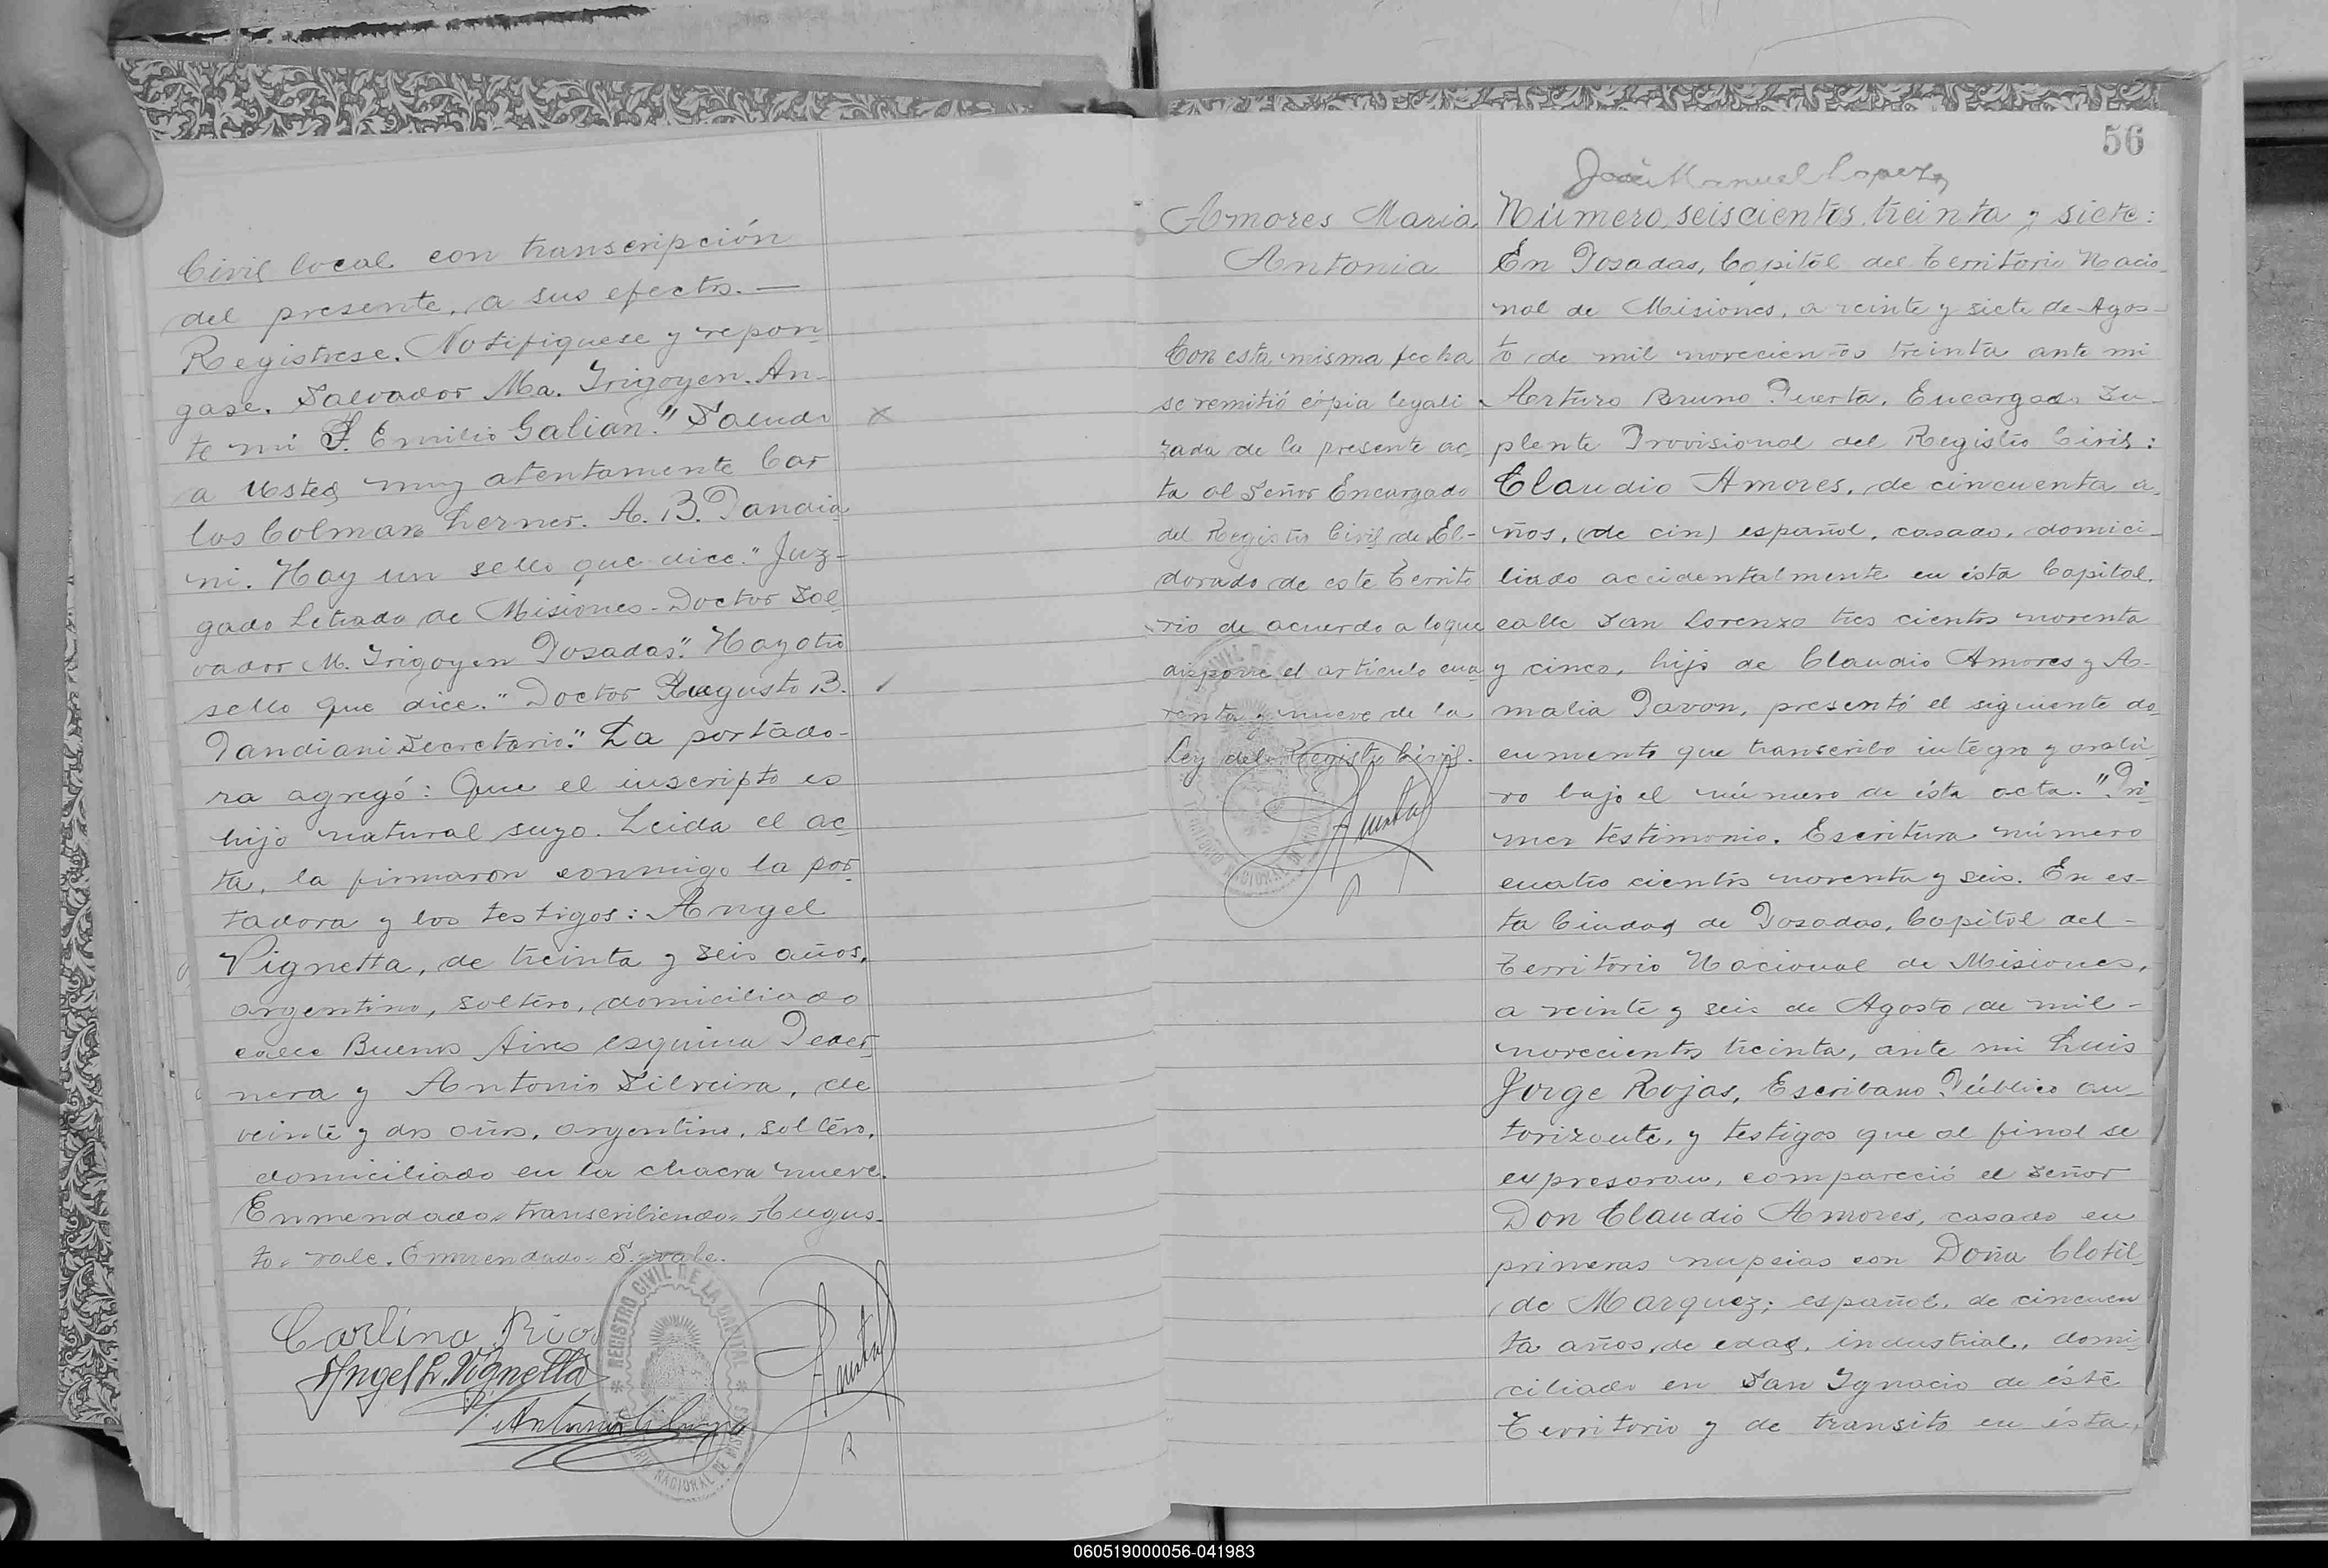 Civil local con transcripción
del presente, a sus efectos. —
Registrese. Notifiquese y repon-
gase. Salvador Ma. Irigoyen. An-
te mi F. Emilio Galian." Saludo
a Usted muy atentamente Car
los Colman Lerner. A. B. Pandia
ni. Hay un sello que dice." Juz-
gado Letrado de Misiones - Doctor Sal
vador M. Irigoyen Posadas." Hay otro
sello que dice." Doctor Augusto B.
Pandiani Secretario." La portado-
ra agregó: Que el inscripto es
hijo natural suyo. Leida el ac-
ta, la firmaron conmigo la por-
tadora y los testigos: Angel
Vignetta, de treinta y seis años,
argentino, soltero, domiciliado
calle Buenos Aires esquina Peder-
nera y Antonio Silveira, de
veinte y dos años, argentino, soltero,
domiciliado en la chacra nueve.
Enmendado = transcribiendo = Augus-
to = vale. Enmendado = S. vale.
Carlina Rios
Angel L. Vignetta
Antonio
REGISTRO CIVIL DE LA CAPITAL
TERRITORIO NACIONAL DE MISIONES
56
José Manuel Lopez
Amores Maria
Antonia
Con esta misma fecha
se remitió cópia legali
zada de la presente ac-
ta al Señor Encargado
del Registro Civil de El-
dorado de este Territo
rio de acuerdo a lo que
dispone el artículo cua
renta y nueve de la
Ley del Registro Civil.
Número seiscientos treinta y siete:
En Posadas, Capital del Territorio Nacio-
nal de Misiones, a veinte y siete de Agos-
to de mil novecientos treinta ante mi
Arturo Bruno Puerta, Encargado Su-
plente Provisional del Registro Civil:
Claudio Amores, de cincuenta a-
ños, (de cin) español, casado, domici-
liado accidentalmente en ésta Capital,
calle San Lorenzo tres cientos noventa
y cinco, hijo de Claudio Amores y A-
malia Pavon, presentó el siguiente do-
cumento que transcribo integro y archi-
vo bajo el número de ésta acta. "Pri-
mer testimonio. Escritura número
cuatro cientos noventa y seis. En es-
ta Ciudad de Posadas, Capital del -
Territorio Nacional de Misiones,
a veinte y seis de Agosto de mil -
novecientos treinta, ante mi Luis
Jorge Rojas, Escribano Público au-
torizante, y testigos que al final se
expresaran, compareció el señor
Don Claudio Amores, casado en
primeras nupcias con Doña Clotil-
de Marquez; español, de cincuen
ta años de edad, industrial, domi-
ciliado en San Ignacio de éste
Territorio y de transito en ésta,
060519000056-041983